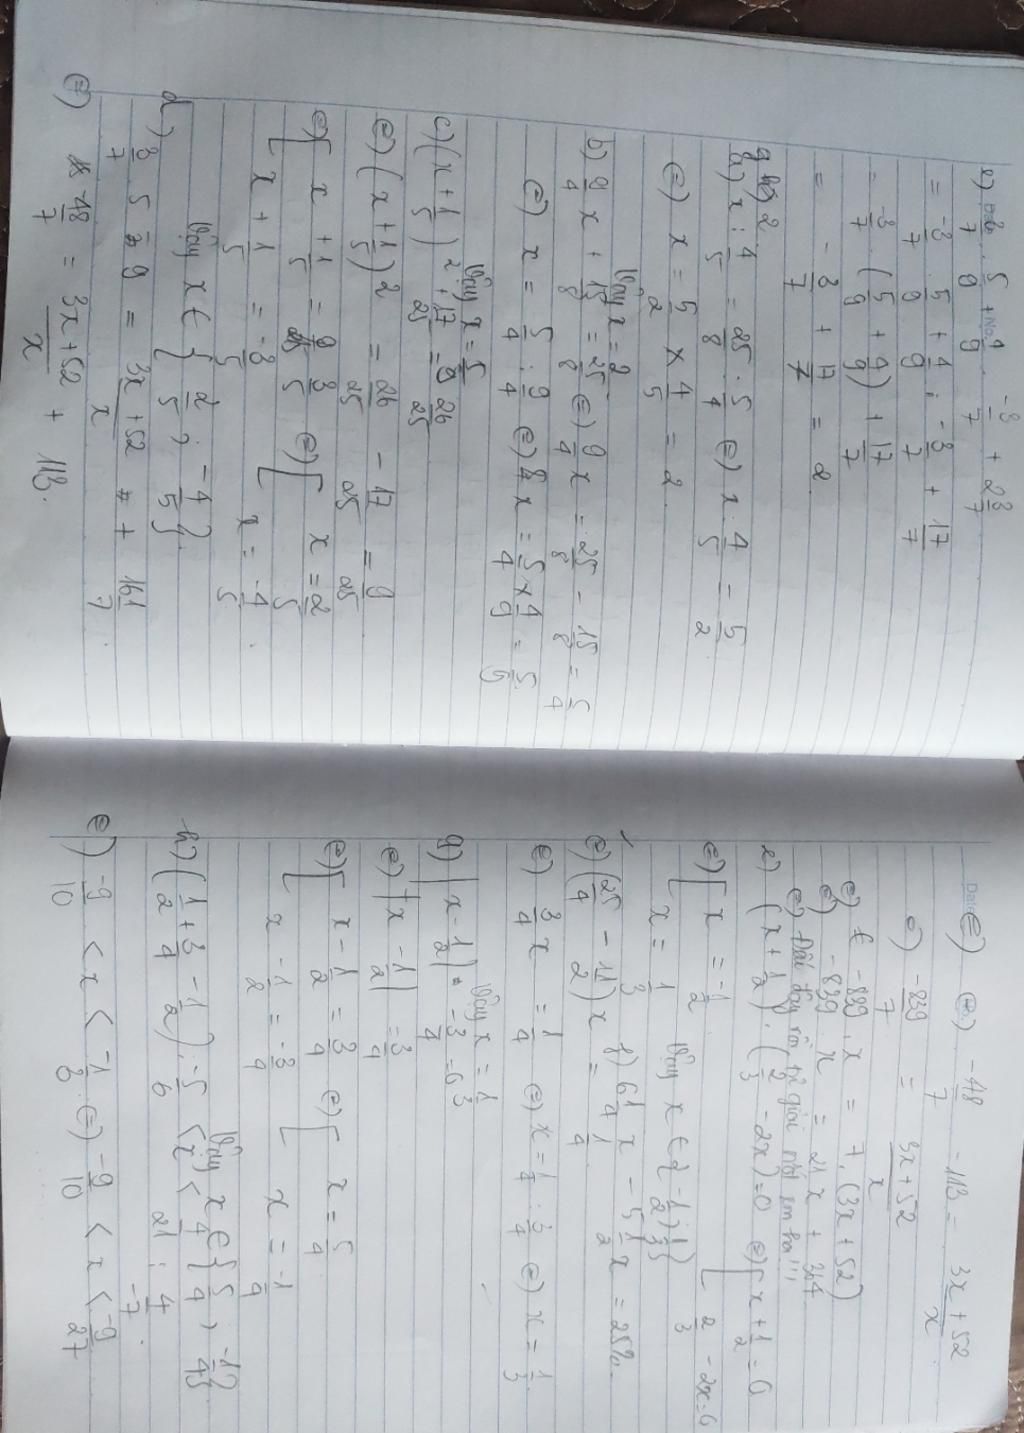 e) -3/7 . 5/9 + 4/9 . -3/7 + 2 3/7
= -3/7 . 5/9 + 4/9 . -3/7 + 17/7
= -3/7 . (5/9 + 4/9) + 17/7
= -3/7 + 17/7 = 2
2
a) x : 4/5 = 25/8 . 5/4 <=> x . 4/5 = 5/2
<=> x = 5/2 × 4/5 = 2
Vậy x = 2
b) 9/4 x + 15/8 = 25/8 <=> 9/4 x = 25/8 - 15/8 = 5/4
<=> x = 5/4 : 9/4 <=> x = 5/4 × 4/9 = 5/9
Vậy x = 5/9
c) (x + 1/5)² + 17/25 = 26/25
<=> (x + 1/5)² = 26/25 - 17/25 = 9/25
<=> [ x + 1/5 = 3/5 <=> [ x = 2/5
[ x + 1/5 = -3/5 [ x = -4/5
Vậy x ∈ { 2/5 ; -4/5 }
d)
<=> -48/7 = 3x+52/x + 113.
<=> -48/7 - 113 = 3x+52/x
<=> -839/7 = 3x+52/x
<=> -839 . x = 7 . (3x + 52)
<=> -839 . x = 21x + 364
<=> Đến đây rồi, tự giải nốt em ha!!!
e) (x + 1/2) . (2/3 - 2x) = 0 <=> [ x + 1/2 = 0
[ 2/3 - 2x = 0
<=> [ x = -1/2
[ x = 1/3 Vậy x ∈ { -1/2 ; 1/3 }
f) 6 1/4 x - 5 1/2 x = 25%
<=> (25/4 - 11/2) x = 1/4
<=> 3/4 x = 1/4 <=> x = 1/4 : 3/4 <=> x = 1/3
Vậy x = 1/3
g) |x - 1/2| - 3/4 = 0
<=> |x - 1/2| = 3/4
<=> [ x - 1/2 = 3/4 <=> [ x = 5/4
[ x - 1/2 = -3/4 [ x = -1/4
Vậy x ∈ { 5/4 ; -1/4 }
<=> -9/10 < x < -1/3 <=> -9/10 < x < -9/27